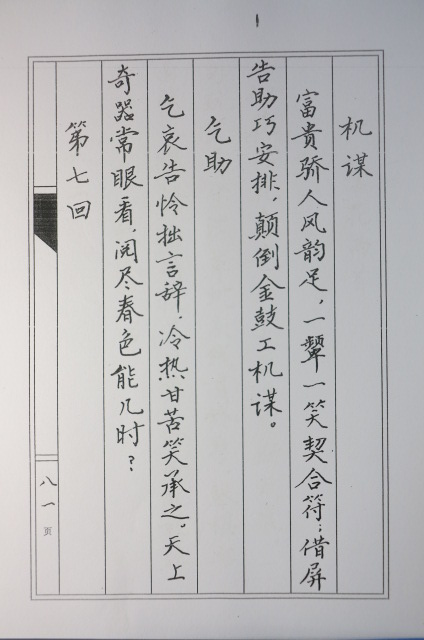 机谋
富贵骄人风韵足，一颦一笑契合符；借屏
告助巧安排，颠倒金鼓工机谋。
乞助
乞哀告怜拙言辞，冷热甘苦笑承之。天上
奇器常眼看，阅尽春色能几时？
第七回
八一页